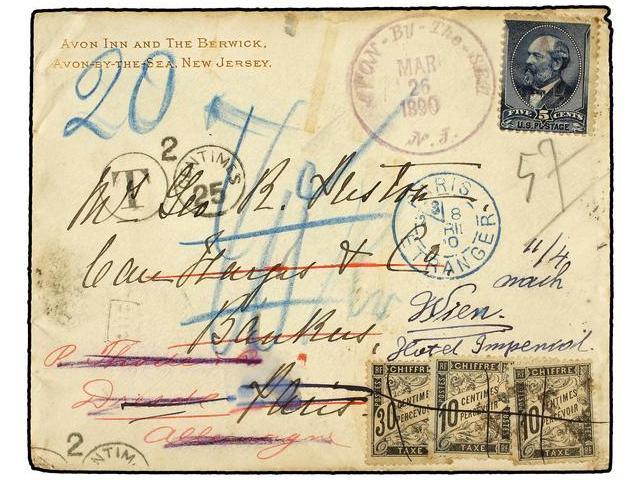 AVON INN AND THE BERWICK,
AVON-BY-THE-SEA, NEW JERSEY.
20
AVON-By-The-SEA
MAR
26
1890
N. J.
FIVE 5 CENTS
U.S. POSTAGE
2
T
CENTIMES
25
57
Mr Geo R. Preston
PARIS
8
ETRANGER
Care Harjes & Co
Bankers,
Paris.
11/4
nach
Wien.
Hotel Imperial
Dresde
Allemagne
2
CENTIMES
RF CHIFFRE
POSTES
30 CENTIMES
PERCEVOIR
TAXE
RF CHIFFRE
10 CENTIMES
PERCEVOIR
TAXE
CHIFFRE
10 CENTIMES
PERCEVOIR
TAXE RF